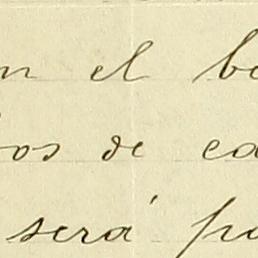 n el b
os de ca
será pa